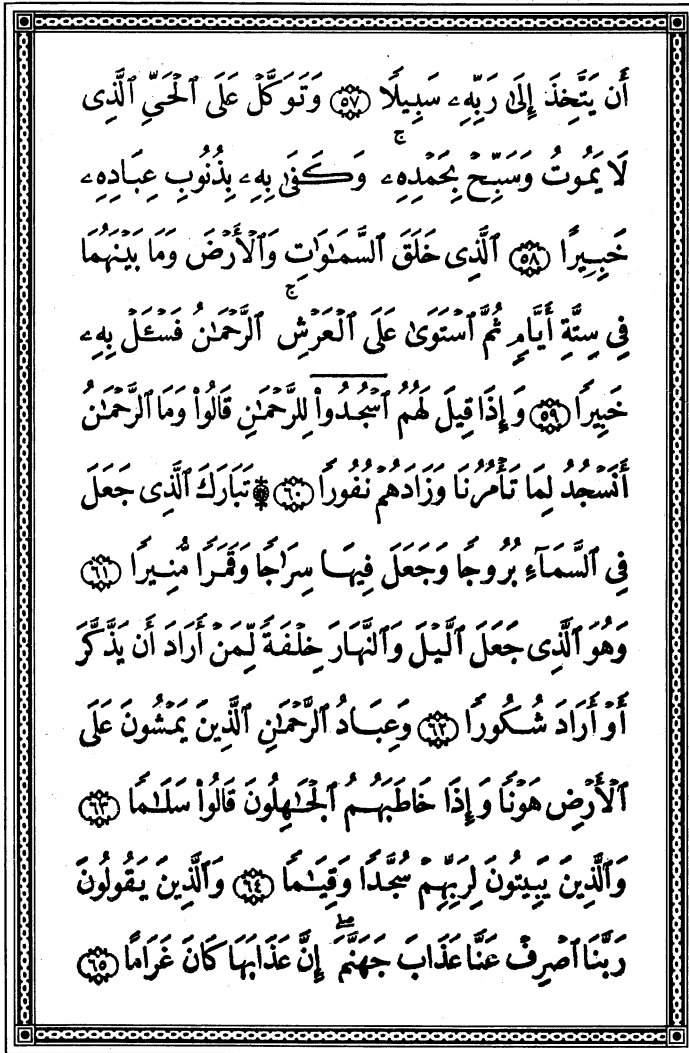 أَن يَتَّخِذَ إِلَىٰ رَبِّهِۦ سَبِيلًا ٥٧ وَتَوَكَّلْ عَلَى ٱلْحَىِّ ٱلَّذِى
لَا يَمُوتُ وَسَبِّحْ بِحَمْدِهِۦ ۚ وَكَفَىٰ بِهِۦ بِذُنُوبِ عِبَادِهِۦ
خَبِيرًا ٥٨ ٱلَّذِى خَلَقَ ٱلسَّمَٰوَٰتِ وَٱلْأَرْضَ وَمَا بَيْنَهُمَا
فِى سِتَّةِ أَيَّامٍ ثُمَّ ٱسْتَوَىٰ عَلَى ٱلْعَرْشِ ۚ ٱلرَّحْمَٰنُ فَسْـَٔلْ بِهِۦ
خَبِيرًا ٥٩ وَإِذَا قِيلَ لَهُمُ ٱسْجُدُوا۟ لِلرَّحْمَٰنِ قَالُوا۟ وَمَا ٱلرَّحْمَٰنُ
أَنَسْجُدُ لِمَا تَأْمُرُنَا وَزَادَهُمْ نُفُورًا ٦٠ ۞ تَبَارَكَ ٱلَّذِى جَعَلَ
فِى ٱلسَّمَآءِ بُرُوجًا وَجَعَلَ فِيهَا سِرَٰجًا وَقَمَرًا مُّنِيرًا ٦١
وَهُوَ ٱلَّذِى جَعَلَ ٱلَّيْلَ وَٱلنَّهَارَ خِلْفَةً لِّمَنْ أَرَادَ أَن يَذَّكَّرَ
أَوْ أَرَادَ شُكُورًا ٦٢ وَعِبَادُ ٱلرَّحْمَٰنِ ٱلَّذِينَ يَمْشُونَ عَلَى
ٱلْأَرْضِ هَوْنًا وَإِذَا خَاطَبَهُمُ ٱلْجَٰهِلُونَ قَالُوا۟ سَلَٰمًا ٦٣
وَٱلَّذِينَ يَبِيتُونَ لِرَبِّهِمْ سُجَّدًا وَقِيَٰمًا ٦٤ وَٱلَّذِينَ يَقُولُونَ
رَبَّنَا ٱصْرِفْ عَنَّا عَذَابَ جَهَنَّمَ ۖ إِنَّ عَذَابَهَا كَانَ غَرَامًا ٦٥